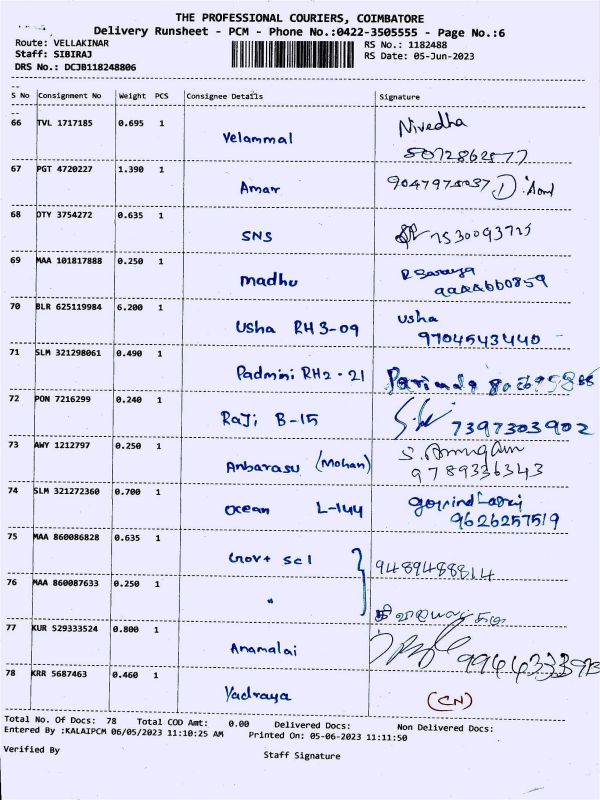 THE PROFESSIONAL COURIERS, COIMBATORE
Delivery Runsheet - PCM - Phone No.:0422-3505555 - Page No.:6
Route: VELLAKINAR RS No.: 1182488
Staff: SIBIRAJ RS Date: 05-Jun-2023
DRS No.: DCJB118248806
S No Consignment No Weight PCS Consignee Details Signature
66 TVL 1717185 0.695 1 Velammal Nivedha
67 PGT 4720227 1.390 1 Amar
68 DTY 3754272 0.635 1 SNS
69 MAA 101817888 0.250 1 madhu R Saranya
70 BLR 625119984 6.200 1 Usha RH3-09 Usha
9704543440
71 SLM 321298061 0.490 1 Padmini RH2 - 21
72 PON 7216299 0.240 1 Raji B-15
7397303902
73 AWY 1212797 0.250 1 Anbarasu (Mohan) S. Arumugam
9789336343
74 SLM 321272360 0.700 1 Ocean L-144
9626257519
75 MAA 860086828 0.635 1 Govt scl
9489488814
76 MAA 860087633 0.250 1 "
77 KUR 529333524 0.800 1 Anamalai
78 KRR 5687463 0.460 1 Yadraya (CN)
Total No. Of Docs: 78 Total COD Amt: 0.00 Delivered Docs: Non Delivered Docs:
Entered By :KALAIPCM 06/05/2023 11:10:25 AM Printed On: 05-06-2023 11:11:50
Verified By Staff Signature